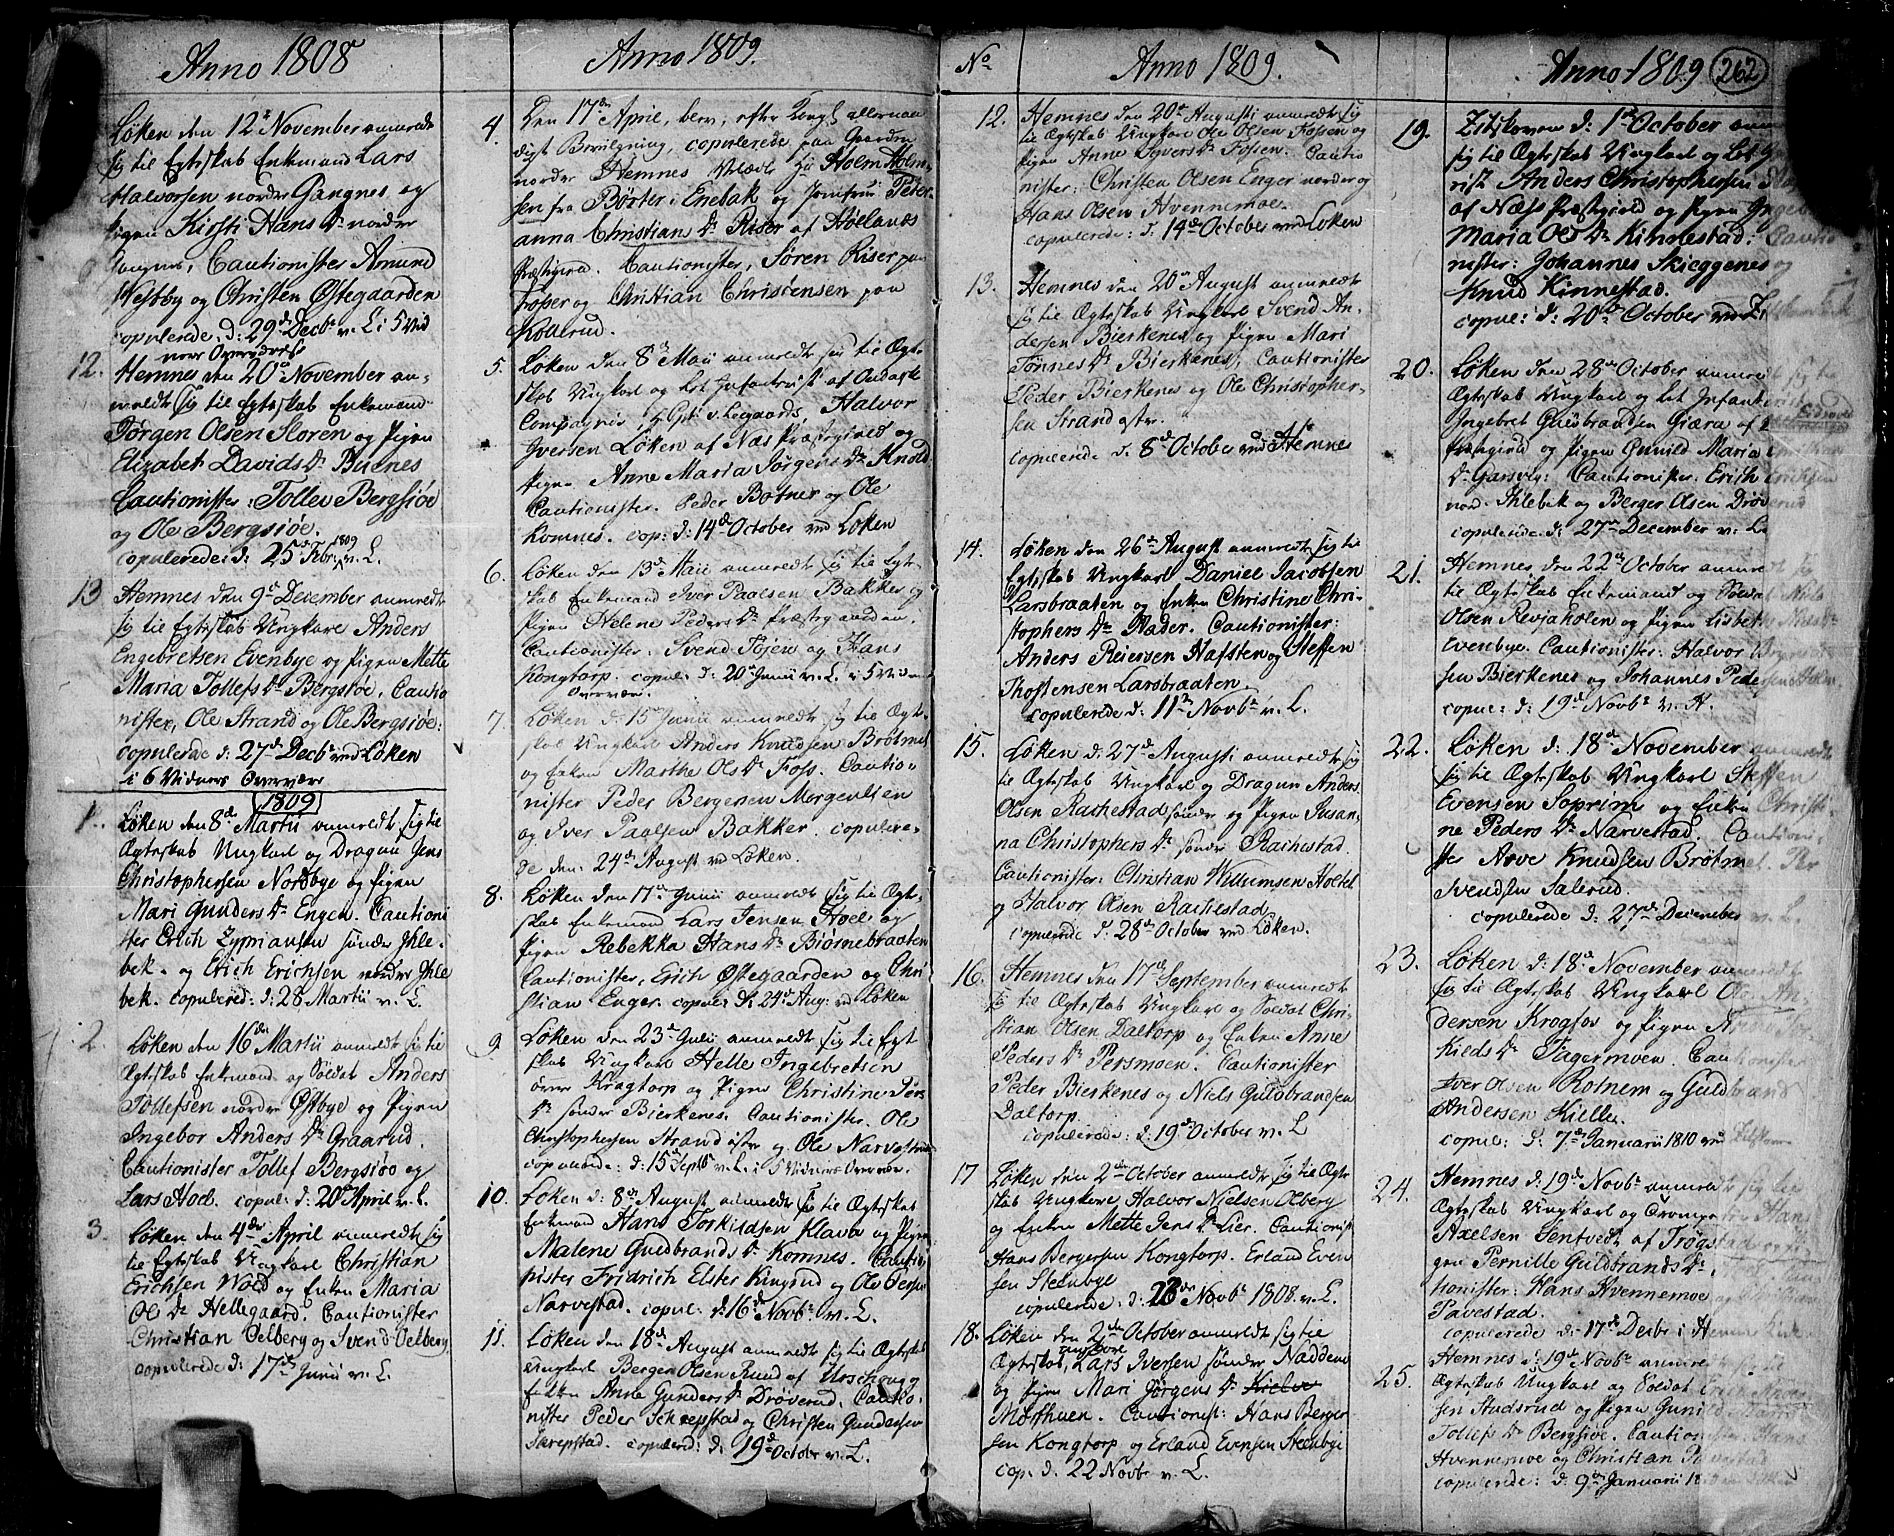 Anno 1808
Løken den 12te November anmeldte
sig til Egteskab Enkemand Lars
Halvorsen nordre Gangnes og
Pigen Kirsti Hans Dr nordre
Gangnes, Cautionister Amund
Westby og Christen Østegaarden
copulerede d: 29de Decbr v. L. i 5 Vid
ners Overværelse
12. Hemnes den 20de November an-
meldte sig til Egteskab Enkemand
Jørgen Olsen Sloren og Pigen
Elizabet Davids Dr Buenes
Cautionister: Tollev Bergsiøe
og Ole Bergsiøe.
copulerede d: 25de Febr. 1809 v. L.
13 Hemnes den 9de December anmeldte
sig til Egteskab Ungkarl Anders
Engebretsen Evenbye og Pigen Mette
Maria Tollefs Dr Bergsiøe. Cautio
nister, Ole Strand og Ole Bergsiøe:
copulerede d: 27de Decbr ved Løken
i 6 Vidners Overvær
1809
1. Løken den 8de Martii anmeldte sig til
Ægteskab Ungkarl og Dragun Jens
Christophersen Nordbye og Pigen
Mari Gunders Dr Engen. Cautioni
ster Erich Zyprianssen søndre Ihle-
bek. og Erich Erichsen nordre Ihle
bek. copulered: d: 28 Martii v. L.
2. Løken den 16de Martii anmeldte sig til
Ægteskab Enkemand og Soldat Anders
Tollefsen nordre Østbye og Pigen
Ingebor Anders Dr Graarud.
Cautionister Tollef Bergsiøe og
Lars Hoel. copul: d: 20de April v. L.
3. Løken den 4de April anmeldte sig
til Egteskab Ungkarl Christian
Erichsen Wold og Enken Maria
Ols Dr Hellegaard. Cautionister
Christian Oelberg og Svend Oelberg
copulerede d: 17de Junii v. L.
Anno 1809.
4. Den 17de April, blev, efter Kongl. allernaa
digst Bevilgning, copulerede paa Gaarden
nordre Hemnes Holm Holm-
sen fra Børter i Enebak og Jomfrue Peter-
anna Christian Dr Riser af Hølands
Præstegield. Cautionister, Søren Riser paa
Fosser og Christian Christensen paa
Kollerud.
5. Løken den 8de Maii anmeldte sig til Egte-
skab Ungkarl og Let Infanterist af
Compagnie, Halvor
Iversen Løken af Næs Præstegield og
Pigen Anne Maria Jørgens Dr Knold
Cautionister. Peder Botner og Ole
Komnes. cop: d: 14de October ved Løken
6. Løken den 13de Maii anmeldte sig til Egte-
skab Enkemand Iver Paalsen Bakker og
Pigen Helene Peders Dr Præstegaarden.
Cautionister. Svend Tøien og Hans
Kongtorp. copul: d: 20de Junii v. L. i 5 Vidners
Overvær.
7. Løken d: 15de Junii anmeldte sig til Egte-
skab Ungkarl Anders Knudsen Brøtmet
og Enken Marthe Ols Dr Foss. Cautio
nister Peder Bergersen Morgenlien
og Iver Paalsen Bakker. copulere-
de den: 24de August ved Løken.
8. Løken den 17de Junii anmeldte sig til Egte-
skab Enkemand Lars Jensen Hoel og
Pigen Rebekka Hans Dr Biørnebraaten
Cautionister, Erich Østegaarden og Chri
stian Enger. copul: d: 24de Aug: ved Løken
9 Løken den 23de Julii anmeldte sig til Egt
skab Ungkarl Helle Ingebretsen
øvre Kragtorp og Pigen Christine Tørs
Dr søndre Bierkenes. Cautionister. Ole
Christophersen Strand østre og Ole Narvestad
copulerede: d: 15de Septb v. L. i 5 Vidners Overvær.
10. Løken d: 8de August anmeldte sig til Ægteskab
Enkemand Hans Torkildsen Klava og Pigen
Malene Guldbrands Dr Komnes. Cautio
nister Fridrich Elster Kinsrud og Ole Persen
Narvestad. copul: d: 16de Novbr v. L.
11. Løken den 18de August anmeldte sig til Ægteskab
Ungkarl Bergen Olsen Rund af Urschoug og
Enken Anne Gunders Dr Drøverud. Cautio-
nister Peder Schrepstad og Christen Gundersen
Skrepstad. copulered: d: 19de October v. L.
No. Anno 1809.
12. Hemnes den 20de Augusti anmeldte sig
til Ægteskab Ungkarl Ole Olsen Fossen og
Pigen Anne Syvers Dr Fossen. Cautio
nister: Christen Olsen Enger nordre og
Hans Olsen Hvennemoe.
copulerede: d. 14de October ved Løken
13. Hemnes den 20de August anmeldte
sig til Ægteskab Ungkarl Svend An-
dersen Bierkenes og Pigen Mari
Tønnes Dr Bierkenes, Cautionister
Peder Bierkenes og Ole Christopher-
sen Strand østr.
copulerede d. 8de October ved Hemnes
14. Løken den 26de August anmeldte sig til
Egteskab Ungkarl Daniel Jacobsen
Larsbraaten og Enken Christine Chri-
stophers Dr Rader. Cautionister:
Anders Reiersen Hafsten og Steffen
Thostensen Larsbraaten.
copulerede d: 11te Novbr v. L.
15. Løken d: 27de Augusti anmeldte sig
til Ægteskab Ungkarl og Dragun Anders
Olsen Rakkestad søndre og Pigen Susan-
na Christophers Dr søndre Rakkestad.
Cautionister: Christian Willumsen Holtet
og Halvor Olsen Rakkestad.
copulerede d. 28de October ved Løken.
16. Hemnes den 17de September anmeldte
sig til Ægteskab Ungkarl og Soldat Chri-
stian Olsen Daltorp og Enken Anne
Peders Dr Persmoen. Cautionister
Peder Bierkenes og Niels Guldbrandsen
Daltorp.
copulerede: d. 19de October v. L
17 Løken den 2den October anmeldte sig til Ægte
skab Ungkarl Halvor Nielsen Olberg
og Enken Mette Jens Dr Lier. Cautionist
Hans Bergersen Kongtorp. Erland Even
sen Steenbye
copulerede: d: Novbr 1808 v. L.
18. Løken den 2den October anmeldte sig til
Ægteskab, Ungkarl Lars Iversen søndre Naddem
og Pigen Mari Jørgens Dr
Mosthuen. Cautionist: Hans Berger
sen Kongtorp og Erland Evensen Steenbye
cop. d. 22 Novbr v. L.
Anno 1809 262
19. Zitskoven d: 1ste October anm
sig til Ægteskab Ungkarl og Let
rist Anders Christophersen
af Næss Præstegield og Pigen Ingebor
Maria Ols Dr Kinnestad. Cautio
nister: Johannes Skieggenes og
Knud Kinnestad.
copul: d: 20de October ved
20. Løken den 28de October anmeldte sig til
Ægteskab Ungkarl og let Infanterist
Ingebret Guldbrandsen Giæra af Eidsvold
Præstegield og Pigen Gunild Maria
Dr Garsvig. Cautionister. Erich Erichsen
nord. Ihlebek og Berger Olsen Drøverud
copulerede d: 27de December v. L.
21. Hemnes den 22de October anmeldte sig
til Ægteskab Enkemand og Soldat Nils
Olsen Revjaholen og Pigen Lisbeth
Evenbye. Cautionister: Halvor
sen Bierkenes og Johannes Peder
copul: d: 19de Novbr v. H.
22. Løken d: 18de November anmeldte
sig til Ægteskab Ungkarl Steffen
Evensen Soprim og Enken Christi-
ne Peders Dr Narvestad. Cautioni-
ster Arve Knudsen Brøtmet. Per
Svendsen Salerud.
copulerede d: 27de December v. L.
23. Løken d: 18de November anmeldte
sig til Ægteskab Ungkarl Ole An-
dersen Krogfos og Pigen
Kields Dr Tagermoen. Cautionister
Iver Olsen Rotnem og Guldbrand
Andersen Kielle.
copul: d: 7de Januarii 1810 ved
24. Hemnes d: 19de Novbr anmeldte sig til
Ægteskab Ungkarl og Hans
Axelsen Tentvedt af Trøgstad og Pi-
gen Pernille Guldbrands Dr
tionister: Hans Hvennemoe og
Pavestad.
copulerede d: 17de Decbr i Hemn Kirke
25. Hemnes d: 19de Novbr anmeldte
Ægteskab Ungkarl og Soldat
sen Hudsrud og Pigen Gunild
Tollefs Dr Bergsiøe. Cautionist Hans
Hvennemoe og Christian
copulerede: d: 9de Januarii